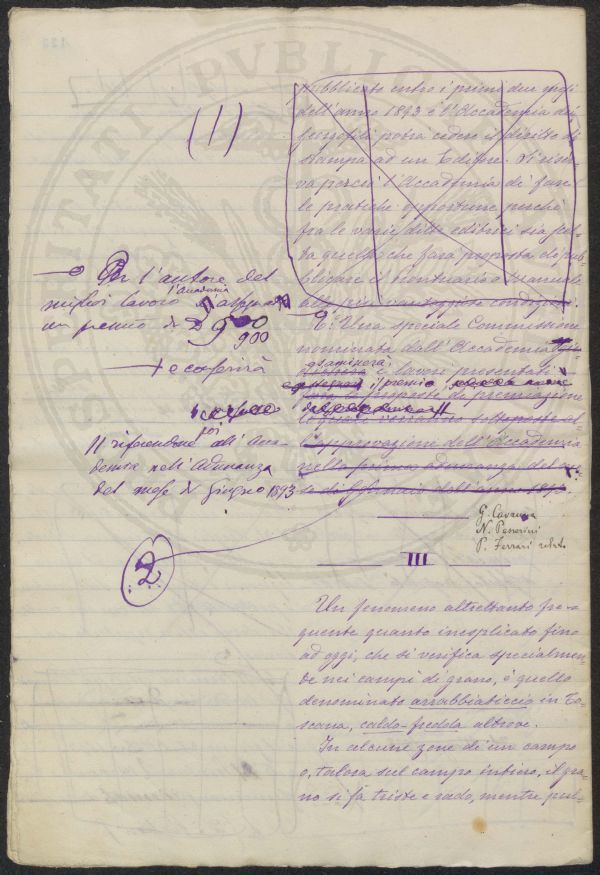 (1)
pubblicato entro i primi due mesi
dell'anno 1893 e l'Accademia dei
Georgofili potrà cedere il diritto di
stampa ad un Editore. Si riser-
va perciò l'Accademia di fare
le pratiche opportune perchè
fra le varie ditte editrici sia
quella che farà proposta di pub-
blicare il prontuario o manuale
alle più vantaggiose condizioni.
Per l'autore del
miglior lavoro l'Accademia
un premio di
900
e conferirà
riferendone poi all'Acca-
demia nell'Adunanza
del mese di Giugno 1893
2
6.° Una speciale Commissione
nominata dall'Accademia
esaminerà i lavori presentati
il premio
le proposte di premiazione
approvazione dell'Accademia
nella prima adunanza del me-
se di Gennaio dell'anno 1893.
G. Cavanna
N. Passerini
P. Ferrari relat.
III
Un fenomeno altrettanto fre-
quente quanto inesplicato fino
ad oggi, che si verifica specialmen-
te nei campi di grano, è quello
denominato arrabbiaticcio in To-
scana, caldo-fredda altrove.
In alcune zone di un campo
o, talora sul campo intiero, il gra-
no si fà triste e rado, mentre pul-